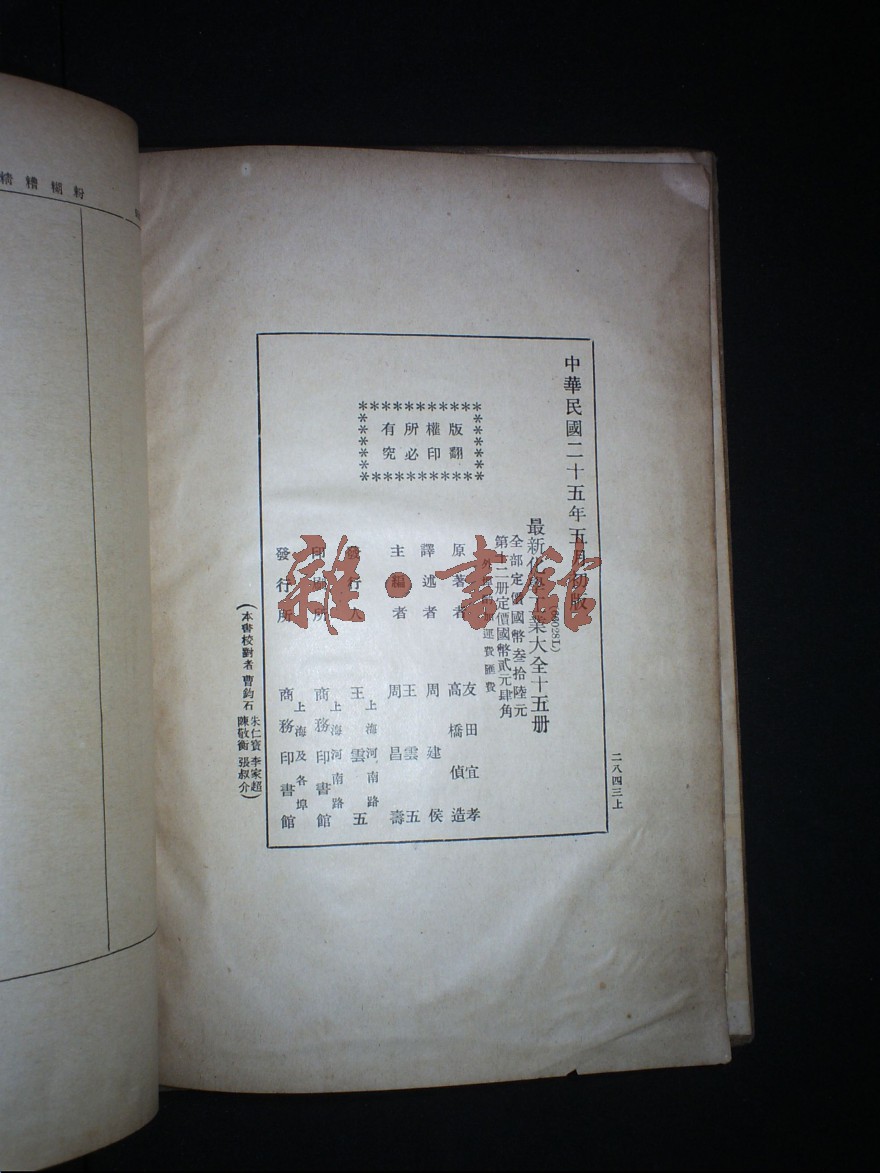 中華民國二十五年五月初版
(60028L)
最新化學工業大全十五册
全部定價國幣叁拾陸元
第十二册定價國幣貳元肆角
運費匯費
原著者 友田宜孝 高橋偵造
譯述者 周建侯
主編者 王雲五 周昌壽
發行人 上海河南路 王雲五
印刷所 上海河南路 商務印書館
發行所 上海及各埠 商務印書館
版權所有
翻印必究
(本書校對者 曹鈞石 朱仁寶 陳敬衡 李家超 張叔介)
二八四三上
粉糊糟糯
雜·書館